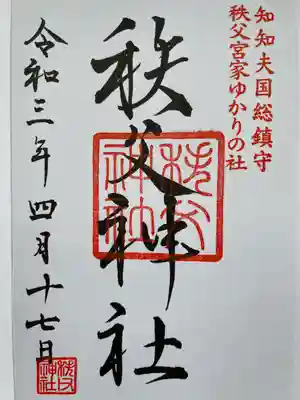 知知夫国総鎮守
秩父宮家ゆかりの社
秩父神社
秩父神社
令和三年四月十七日
秩父神社